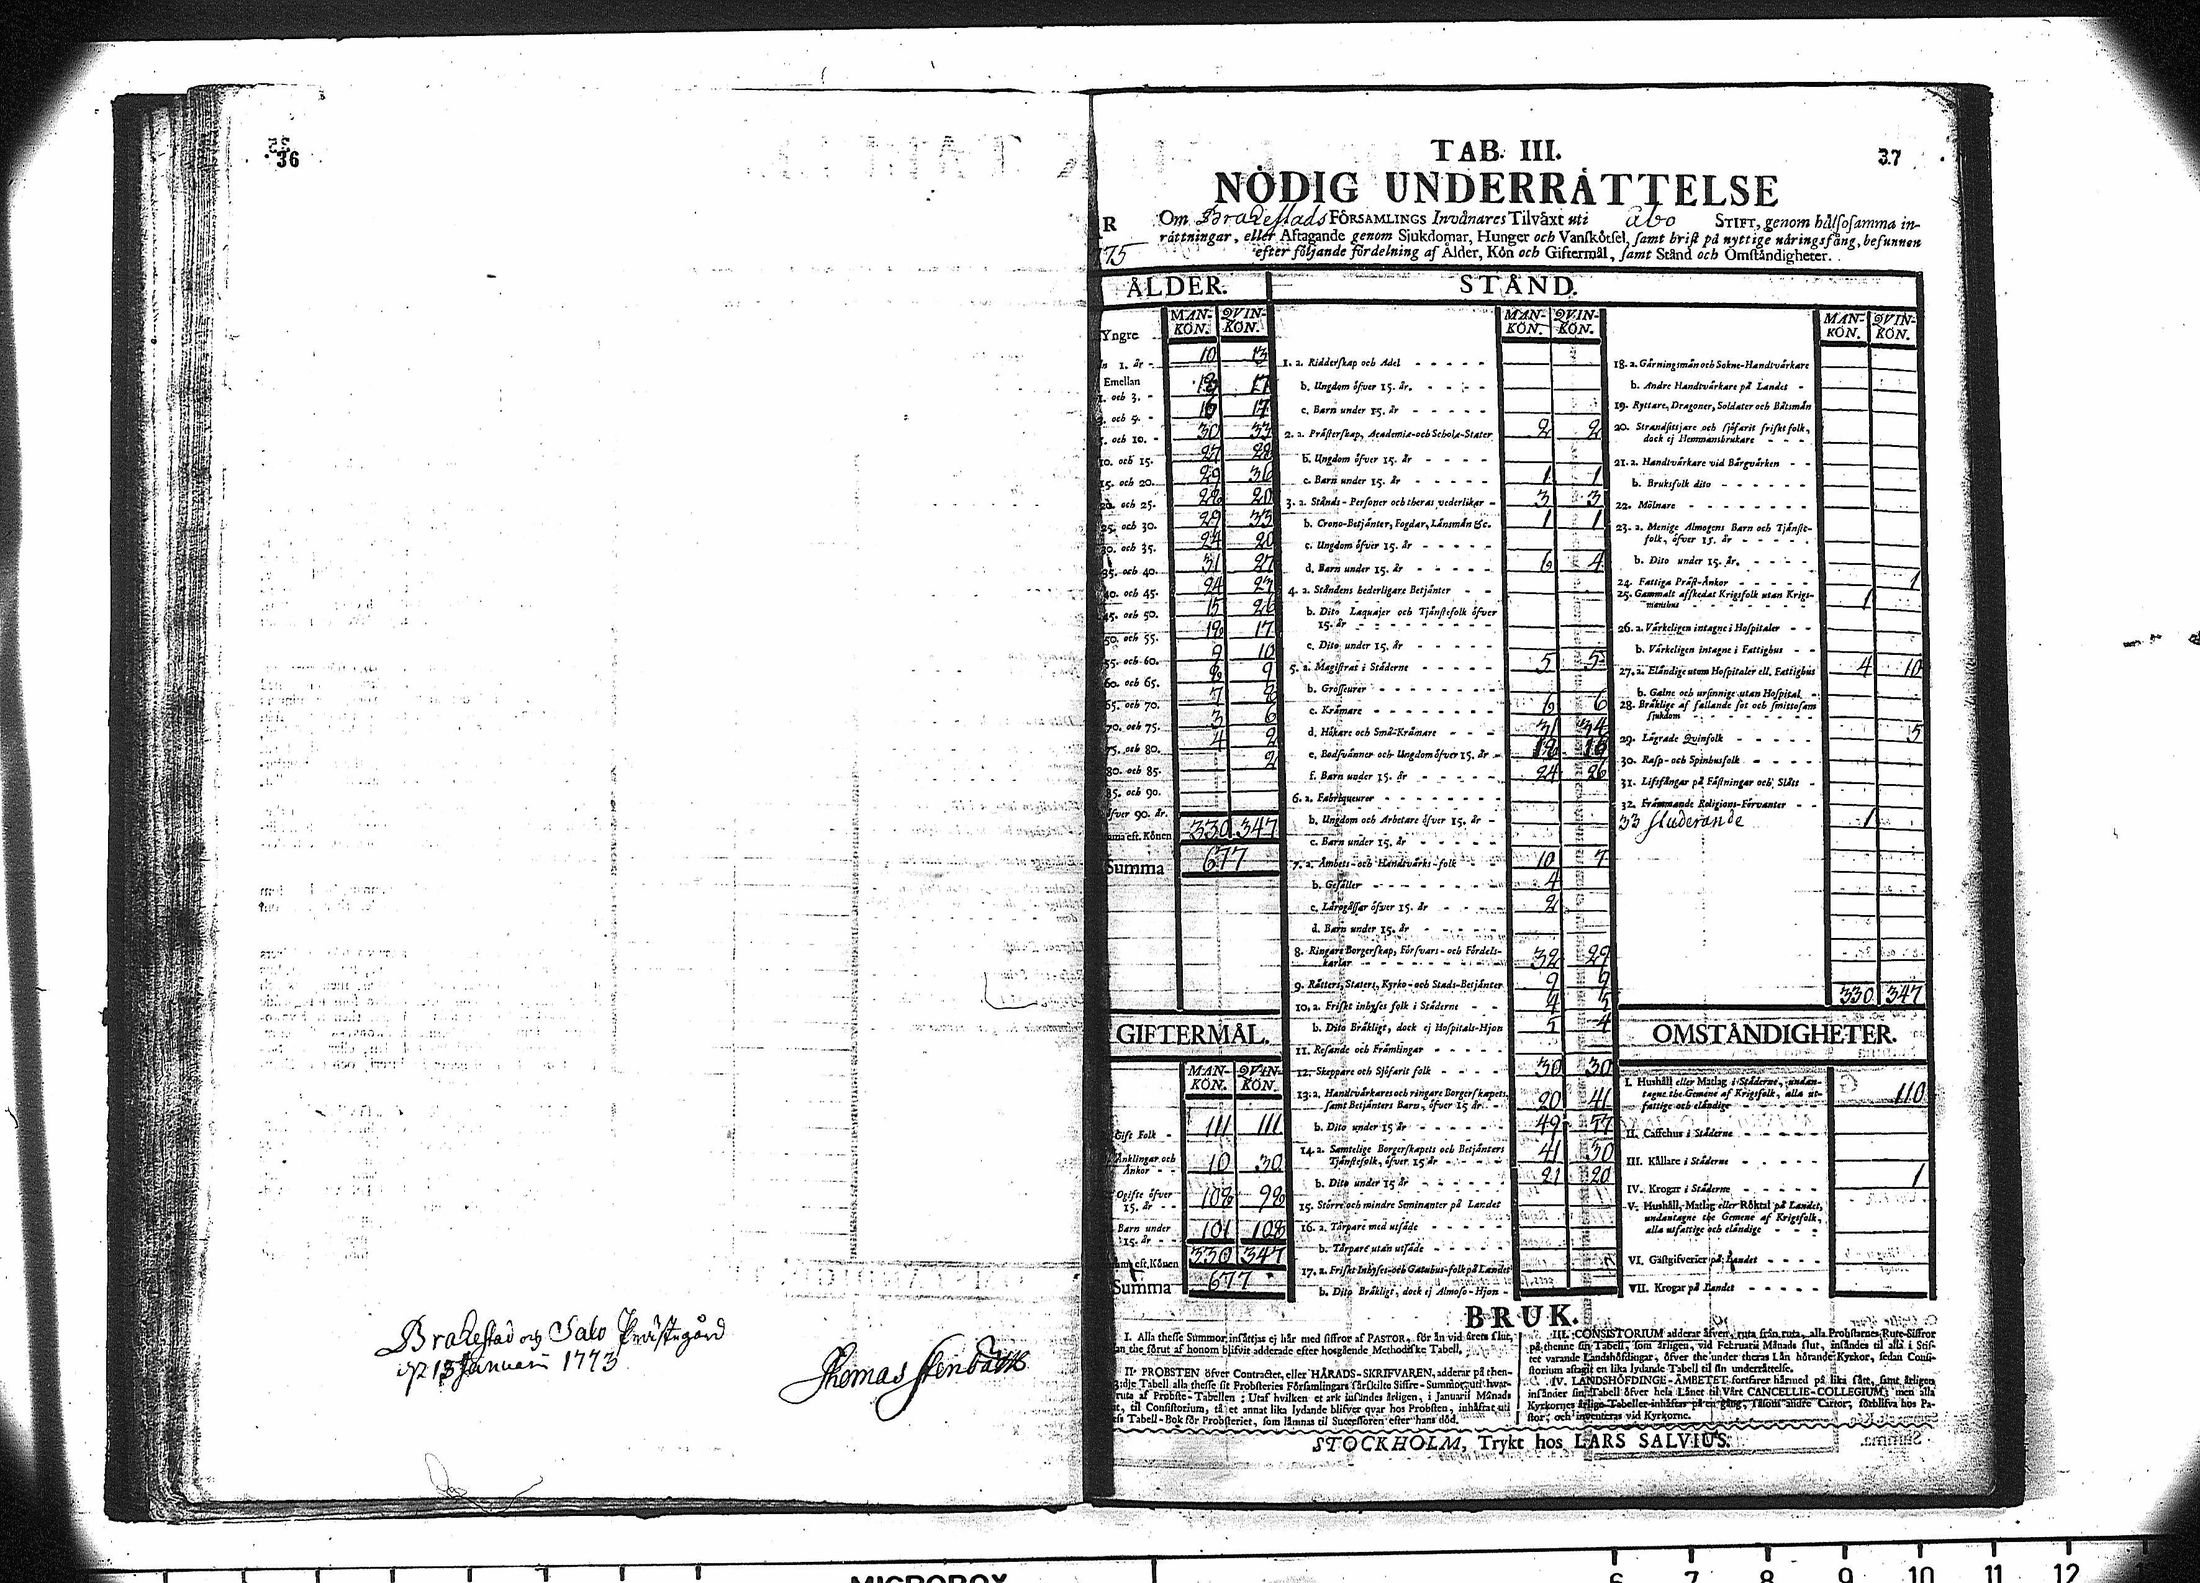 36
Brahestad och Salo Prästegård
d. 13 Januarii 1773
Thomas Stenbäck
37
TAB. III.
NÖDIG UNDERRÄTTELSE
Om Brahestads FÖRSAMLINGS Invånares Tilväxt uti åbo STIFT, genom hälsosamma in-
rättningar, eller Aftagande genom Sjukdomar, Hunger och Vanskötsel, samt brist på nyttige näringsfång, befunnen
efter följande fördelning af Ålder, Kön och Giftermål, samt Stånd och Omständigheter.
R
75
ÅLDER.
MAN-KÖN. QVIN-KÖN.
Yngre
1. år - 10 13
Emellan
1. och 3. - 18 17
3. och 5. - 16 17
5. och 10. - 30 33
10. och 15. 27 28
15. och 20. 29 36
20. och 25. 28 20
25. och 30. 29 33
30. och 35. 24 20
35. och 40. 31 27
40. och 45. 24 23
45. och 50. 15 26
50. och 55. 18 17
55. och 60. 9 10
60. och 65. 8 9
65. och 70. 7 8
70. och 75. 3 6
75. och 80. 4 2
80. och 85. 2
85. och 90.
öfver 90. år.
Suma eft. Könen 330 347
Summa 677
GIFTERMÅL.
MAN-KÖN. QVIN-KÖN.
Gift Folk - 111 111
Änklingar och
Änkor - - 10 30
Ogifte öfver
15. år - - 108 98
Barn under
15. år - - 101 108
Suma eft. Könen 330 347
Summa 677
STÅND.
MAN-KÖN. QVIN-KÖN.
1. a. Ridderskap och Adel
b. Ungdom öfver 15. år.
c. Barn under 15. år
2. a. Prästerskap, Academiæ- och Scholæ-Stater 2 2
b. Ungdom öfver 15. år
c. Barn under 15. år 1 1
3. a. Stånds-Personer och theras vederlikar 3 3
b. Crono-Betjänter, Fogdar, Länsmän &c. 1 1
c. Ungdom öfver 15. år
d. Barn under 15. år 6 4
4. a. Ståndens hederligare Betjänter
b. Dito Laquajer och Tjänstefolk öfver
15. år
c. Dito under 15. år
5. a. Magistrat i Städerne 5 5
b. Grosseurer
c. Krämare 6 6
d. Hökare och Små-Krämare 31 34
e. Bodsvänner och Ungdom öfver 15. år 18 18
f. Barn under 15. år 24 26
6. a. Fabriqueurer
b. Ungdom och Arbetare öfver 15. år
c. Barn under 15. år
7. a. Ämbets- och Handtvärks-folk 10 7
b. Gesäller 4
c. Lärogåssar öfver 15. år 2
d. Barn under 15. år
8. Ringare Borgerskap, Försvars- och Fördels-
karlar 32 29
9. Rätters, Staters, Kyrko- och Stads-Betjänter 9 9
10. a. Friskt inhyses folk i Städerne 4 5
b. Dito Bräkligt, dock ej Hospitals-Hjon 5 4
11. Resande och Främlingar
12. Skeppare och Sjöfarit folk 30 30
13. a. Handtvärkares och ringare Borgerskapets
samt Betjänters Barn, öfver 15 år 20 41
b. Dito under 15 år 49 57
14. a. Samtelige Borgerskapets och Betjänters
Tjänstefolk, öfver 15 år 41 30
b. Dito under 15 år 21 20
15. Större och mindre Seminanter på Landet
16. a. Tårpare med utsäde
b. Tårpare utan utsäde
17. a. Friskt Inhyses- och Gatuhus-folk på Landet
b. Dito Bräkligt, dock ej Almoso-Hjon
MAN-KÖN. QVIN-KÖN.
18. a. Gärningsmän och Sokne-Handtvärkare
b. Andre Handtvärkare på Landet
19. Ryttare, Dragoner, Soldater och Båtsmän
20. Strandsittjare och sjöfarit friskt folk,
dock ej Hemmansbrukare
21. a. Handtvärkare vid Bärgvärken
b. Bruksfolk dito
22. Mölnare
23. a. Menige Almogens Barn och Tjänste-
folk, öfver 15. år
b. Dito under 15. år.
24. Fattiga Präst-Änkor 1
25. Gammalt afskedat Krigsfolk utan Krigs-
manshus 1
26. a. Värkeligen intagne i Hospitaler
b. Värkeligen intagne i Fattighus
27. a. Eländige utom Hospitaler ell. Fattighus 4 10
b. Galne och ursinnige utan Hospital
28. Bräklige af fallande sot och smittosam
sjukdom
29. Lägrade Qvinfolk 5
30. Rasp- och Spinhusfolk
31. Lifsfångar på Fästningar och Slått
32. Främmande Religions-Förvanter
33 studerande 1
330 347
OMSTÄNDIGHETER.
I. Hushåll eller Matlag i Städerne, undan-
tagne the Gemene af Krigsfolk, alla ut-
fattige och eländige 110
II. Caffehus i Städerne
III. Källare i Städerne
IV. Krogar i Städerne 1
V. Hushåll, Matlag eller Röktal på Landet,
undantagne the Gemene af Krigsfolk,
alla utfattige och eländige
VI. Gästgifverier på Landet
VII. Krogar på Landet
BRUK.
I. Alla thesse Summor insättjas ej här med siffror af PASTOR, för än vid årets slut,
an the förut af honom blifvit adderade efter hosgående Methodiske Tabell.
II. PROBSTEN öfver Contractet, eller HÄRADS-SKRIFVAREN, adderar på then-
Tabell alla thesse sit Probsteries Församlingars särskilte Siffre-Summor, uti hvar-
ruta af Probste-Tabellen: Utaf hvilken et ark insändes årligen, i Januarii Månads
t, til Consistorium, tå et annat lika lydande blifver qvar hos Probsten, inhäftat uti
Tabell-Bok för Probsteriet, som lämnas til Successoren efter hans död.
III. CONSISTORIUM adderar äfven, ruta från ruta, alla Probstarnes Rute-Siffror
på thenne sin Tabell, som årligen, vid Februarii Månads slut, insändes til alla i Stif-
tet varande Landshöfdingar, öfver the under theras Län hörande Kyrkor, sedan Consi-
storium aftagit en lika lydande Tabell til sin underrättelse.
IV. LANDSHÖFDINGE-ÄMBETET fortfarer härmed på lika sätt, samt årligen
insänder sin Tabell öfver hela Länet til Vårt CANCELLIE-COLLEGIUM; men alla
Kyrkornes årlige Tabeller inhäftas på en gång, såsom andre Cartor, förblifva hos Pa-
stor, och inventeras vid Kyrkorne.
STOCKHOLM, Trykt hos LARS SALVIUS.
6 7 8 9 10 11 12